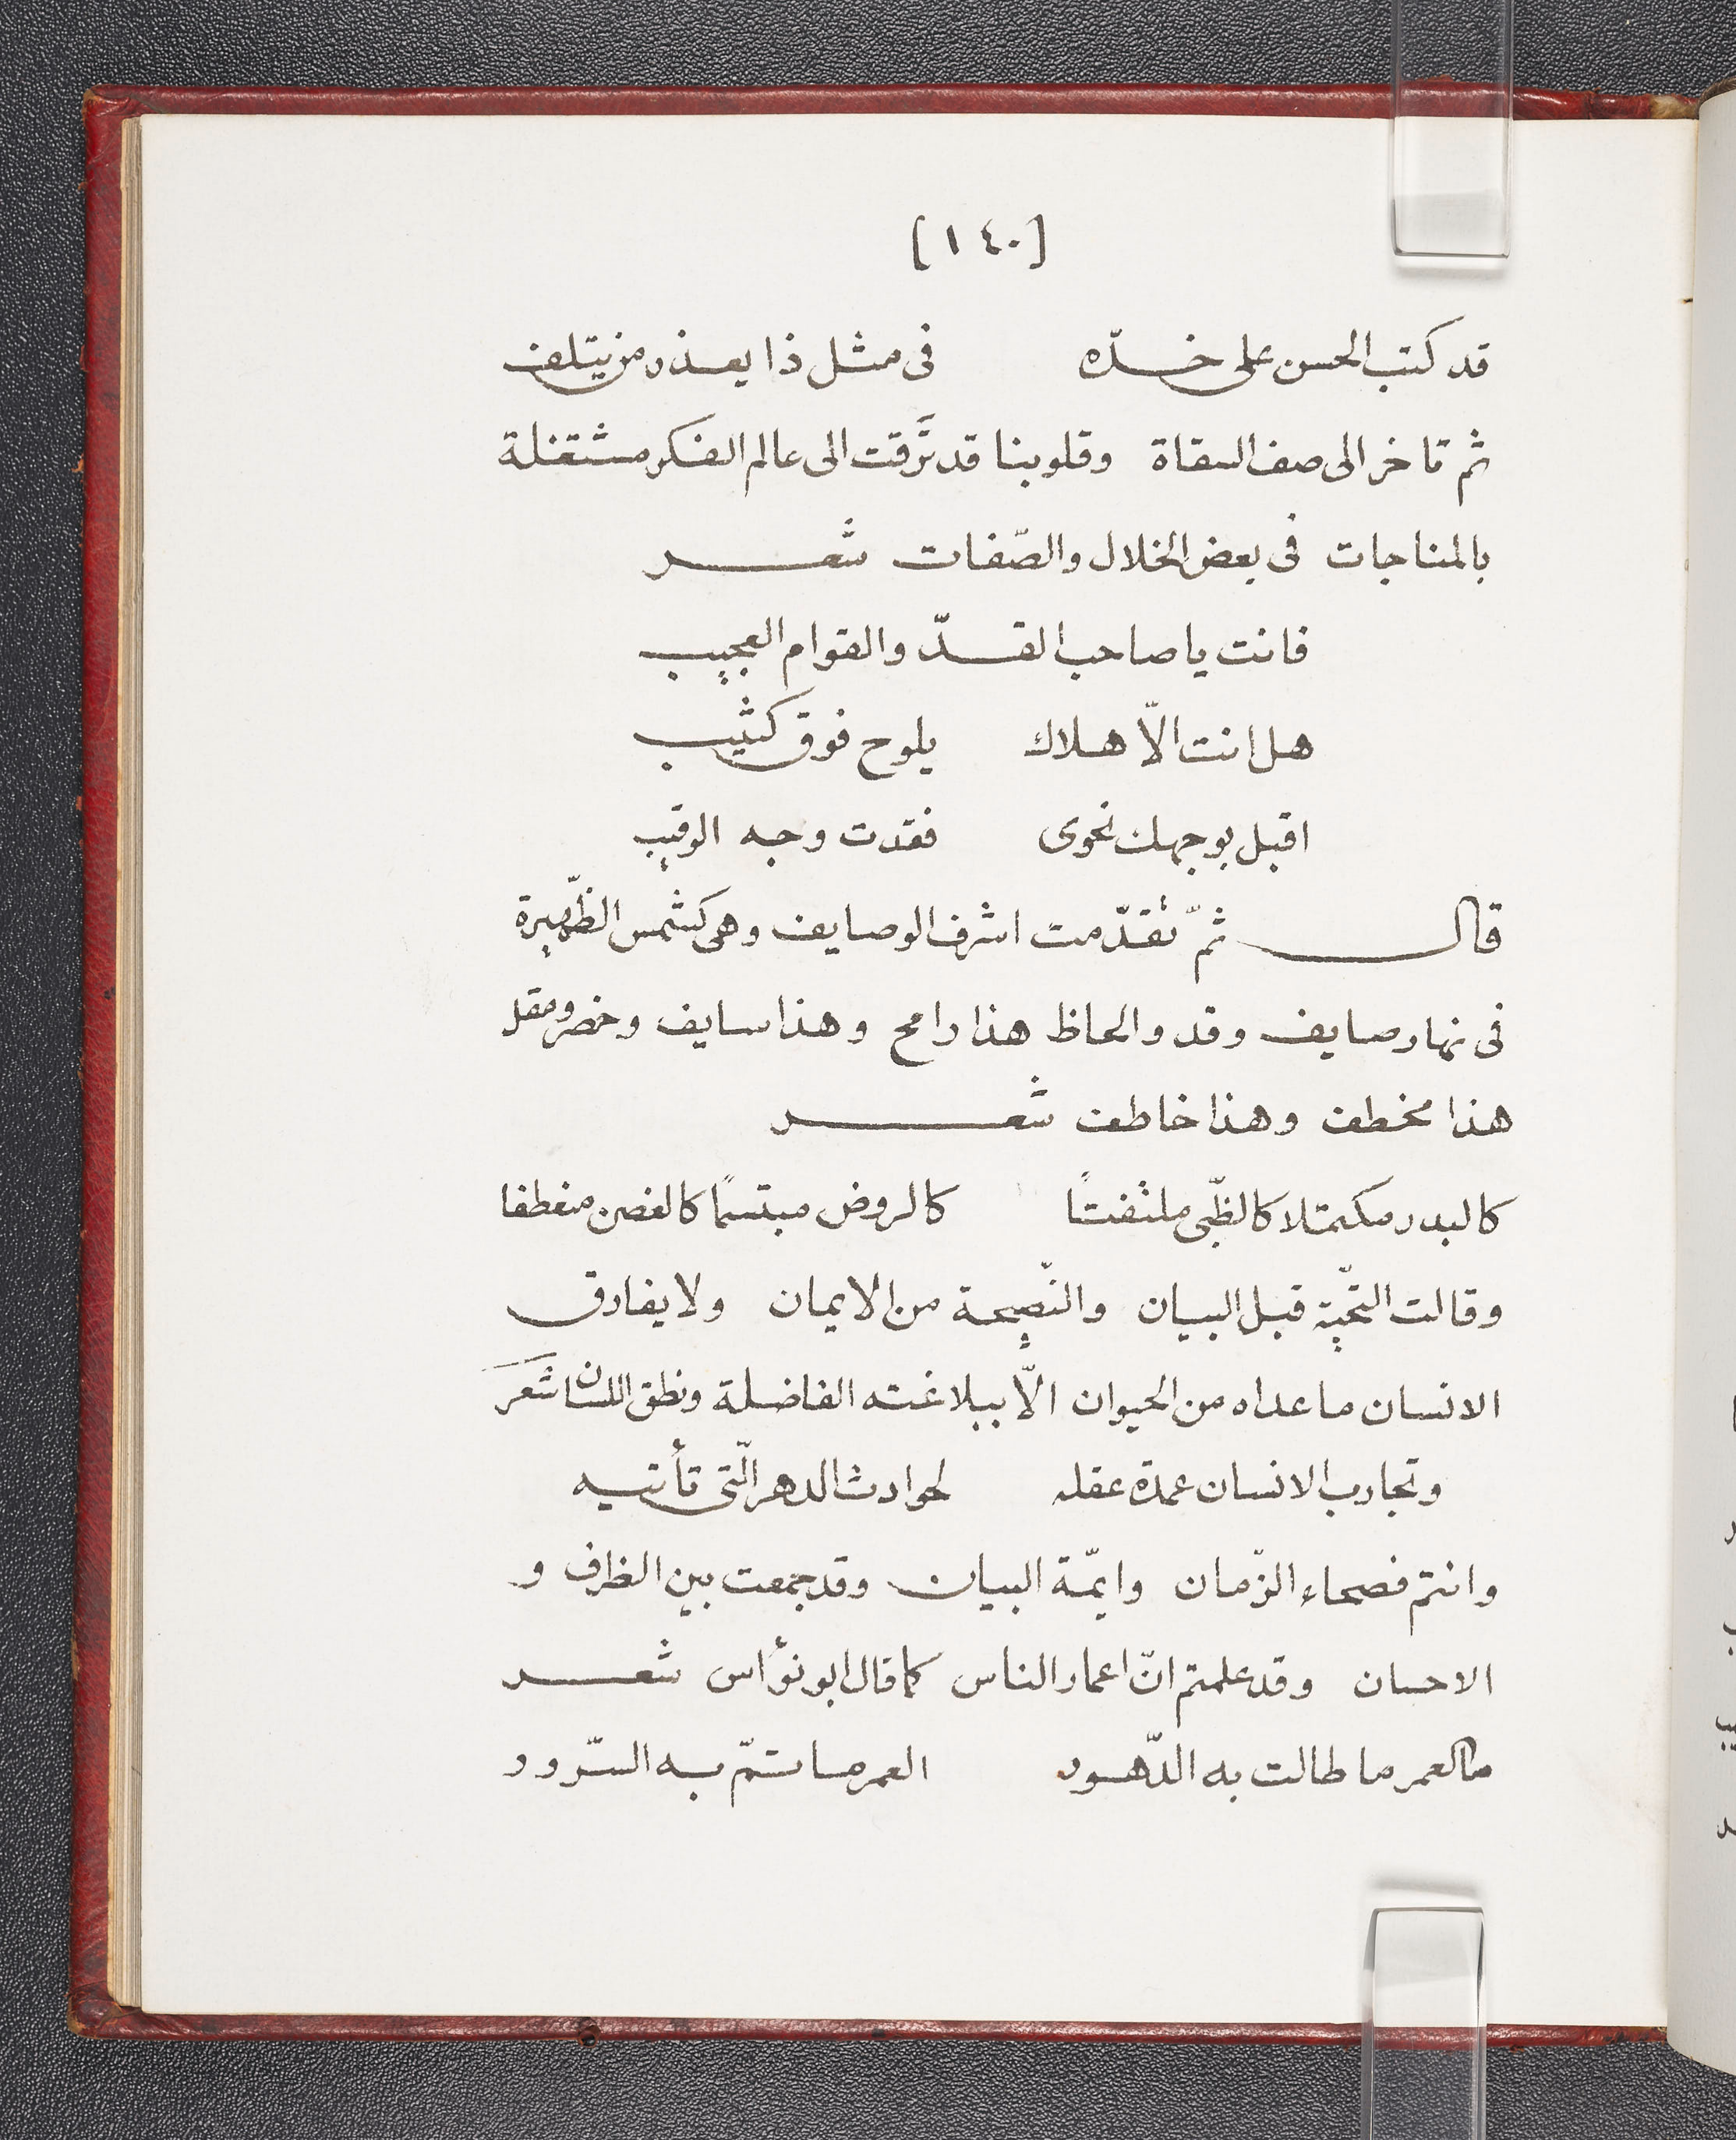 [١٤٠]
قد كتب الحسن على خدّه في مثل ذا يعذر من يتلف
ثم تاخر الى صف السقاة وقلوبنا قد ترَّقت الى عالم الفكر مشتغلة
بالمناجات فى بعض الخلال والصّفات شعر
فانت يا صاحب القدّ والقوام العجيب
هل انت الّا هلاك يلوح فوق كثيب
اقبل بوجهك نحوى فقدت وجه الرقيب
قال ثمّ تقدّمت اشرف الوصايف وهى كشمس الظّهيرة
فى نهار صايف وقد والحاظ هذا رامح وهذا سايف وخصر ومقل
هذا مخطف وهذا خاطف شعر
كالبدر مكتملا كالظّبى ملتفتًا كالروض مبتسمًا كالغصن منعطفا
وقالت التحّية قبل البيان والنّصيحة من الايمان ولا يفارق
الانسان ما عداه من الحيوان الّا ببلاغته الفاضلة ونطق اللسان شعر
وتجارب الانسان عمدة عقله لحوادث الدهر الّتى تأتيه
وانتم فصحاء الزّمان وايمّة البيان وقد جمعت بين الظراف و
الاحسان وقد علمتم انّ اعمار الناس كما قال ابو نؤاس شعر
ما العمر ما طالت به الدّهور العمر ما تتمّ به السّرور